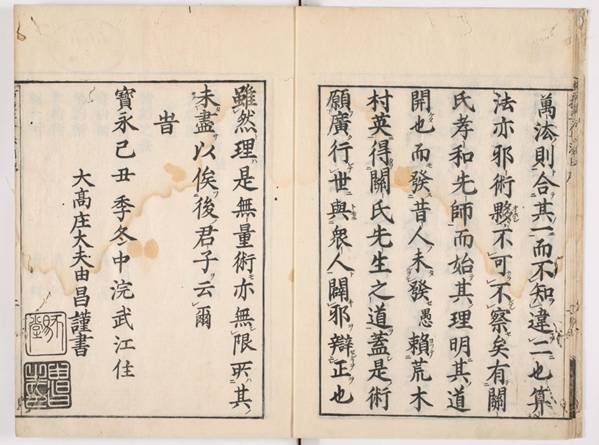 萬法則合其一而不知違二也算
法亦邪術夥不可不察矣有關
氏孝和先師而始其理明其道
開也而發昔人未發愚賴荒木
村英得關氏先生之道蓋是術
願廣行世與衆人闢邪辯正也
雖然理是無量術亦無限其
未盡以俟後君子云爾
旹
寶永己丑季冬中浣武江住
大高庄大夫由昌謹書